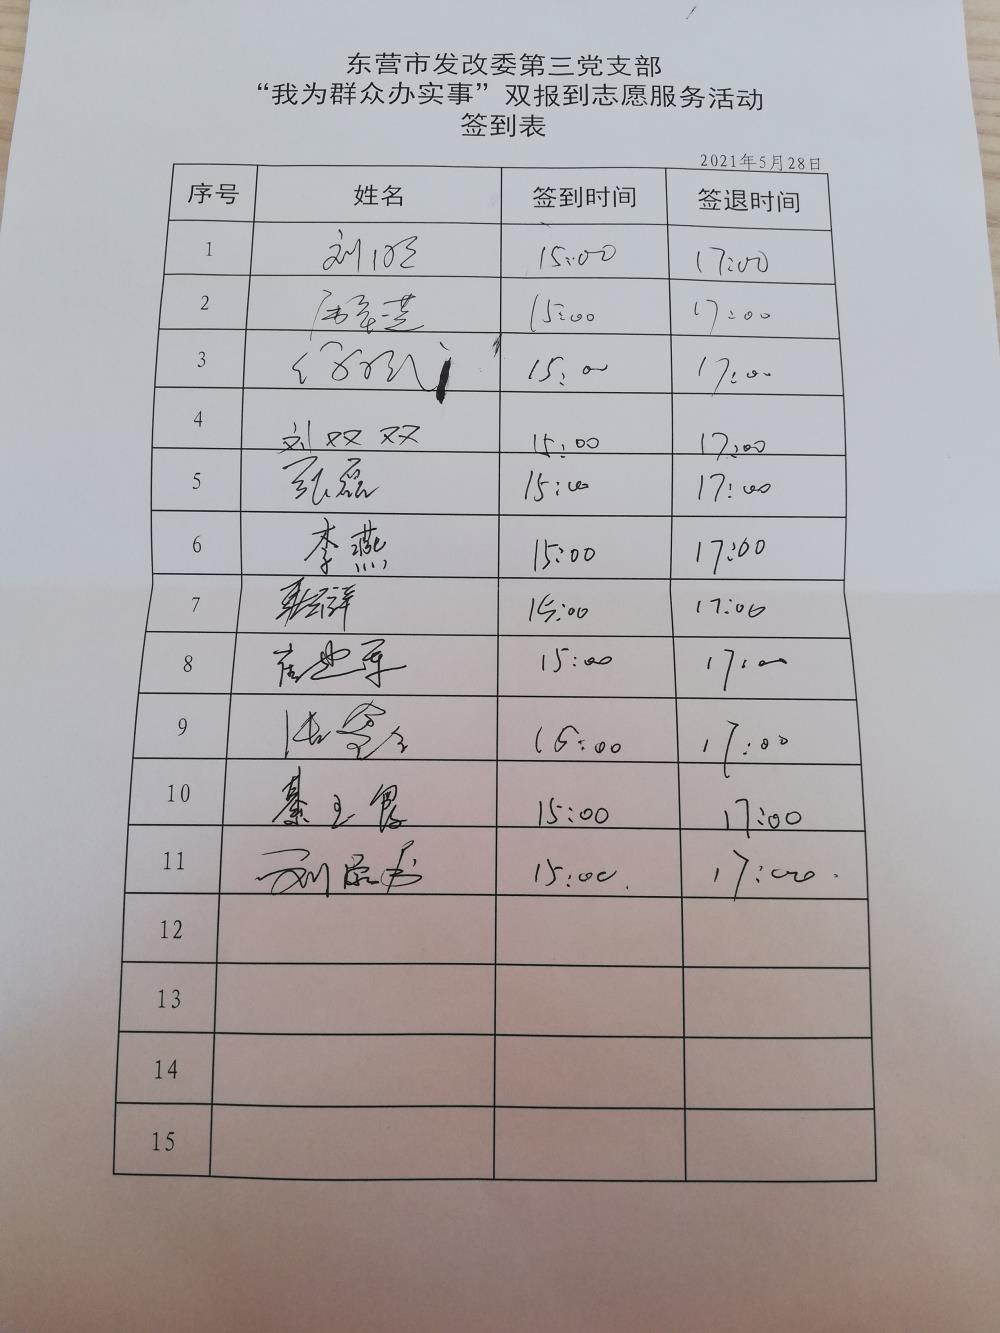 东营市发改委第三党支部
“我为群众办实事”双报到志愿服务活动
签到表
2021年5月28日
序号 姓名 签到时间 签退时间
1 刘 15:00 17:00
2 15:00 17:00
3 15:00 17:00
4 刘双双 15:00 17:00
5 张磊 15:00 17:00
6 李燕 15:00 17:00
7 15:00 17:00
8 15:00 17:00
9 15:00 17:00
10 綦玉 15:00 17:00
11 15:00 17:00
12
13
14
15